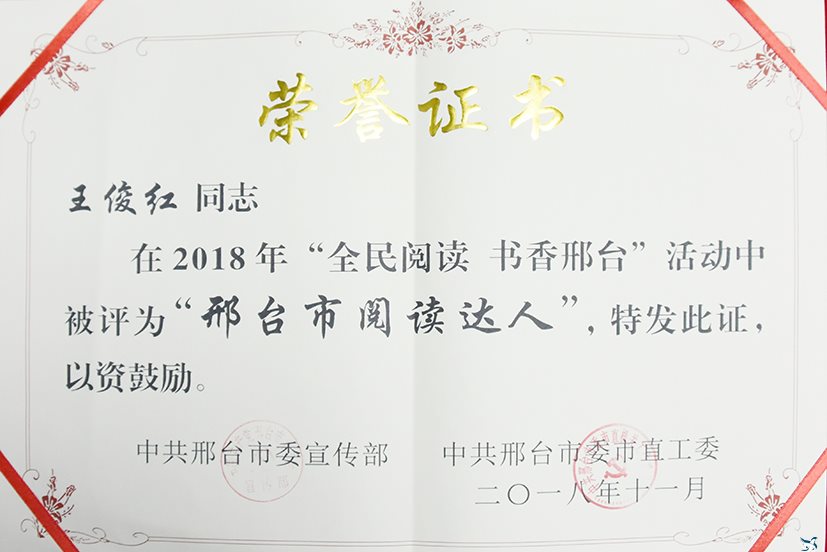 荣誉证书
王俊红 同志
在2018年“全民阅读 书香邢台”活动中
被评为“邢台市阅读达人”，特发此证，
以资鼓励。
中共邢台市委宣传部 中共邢台市委市直工委
二〇一八年十一月